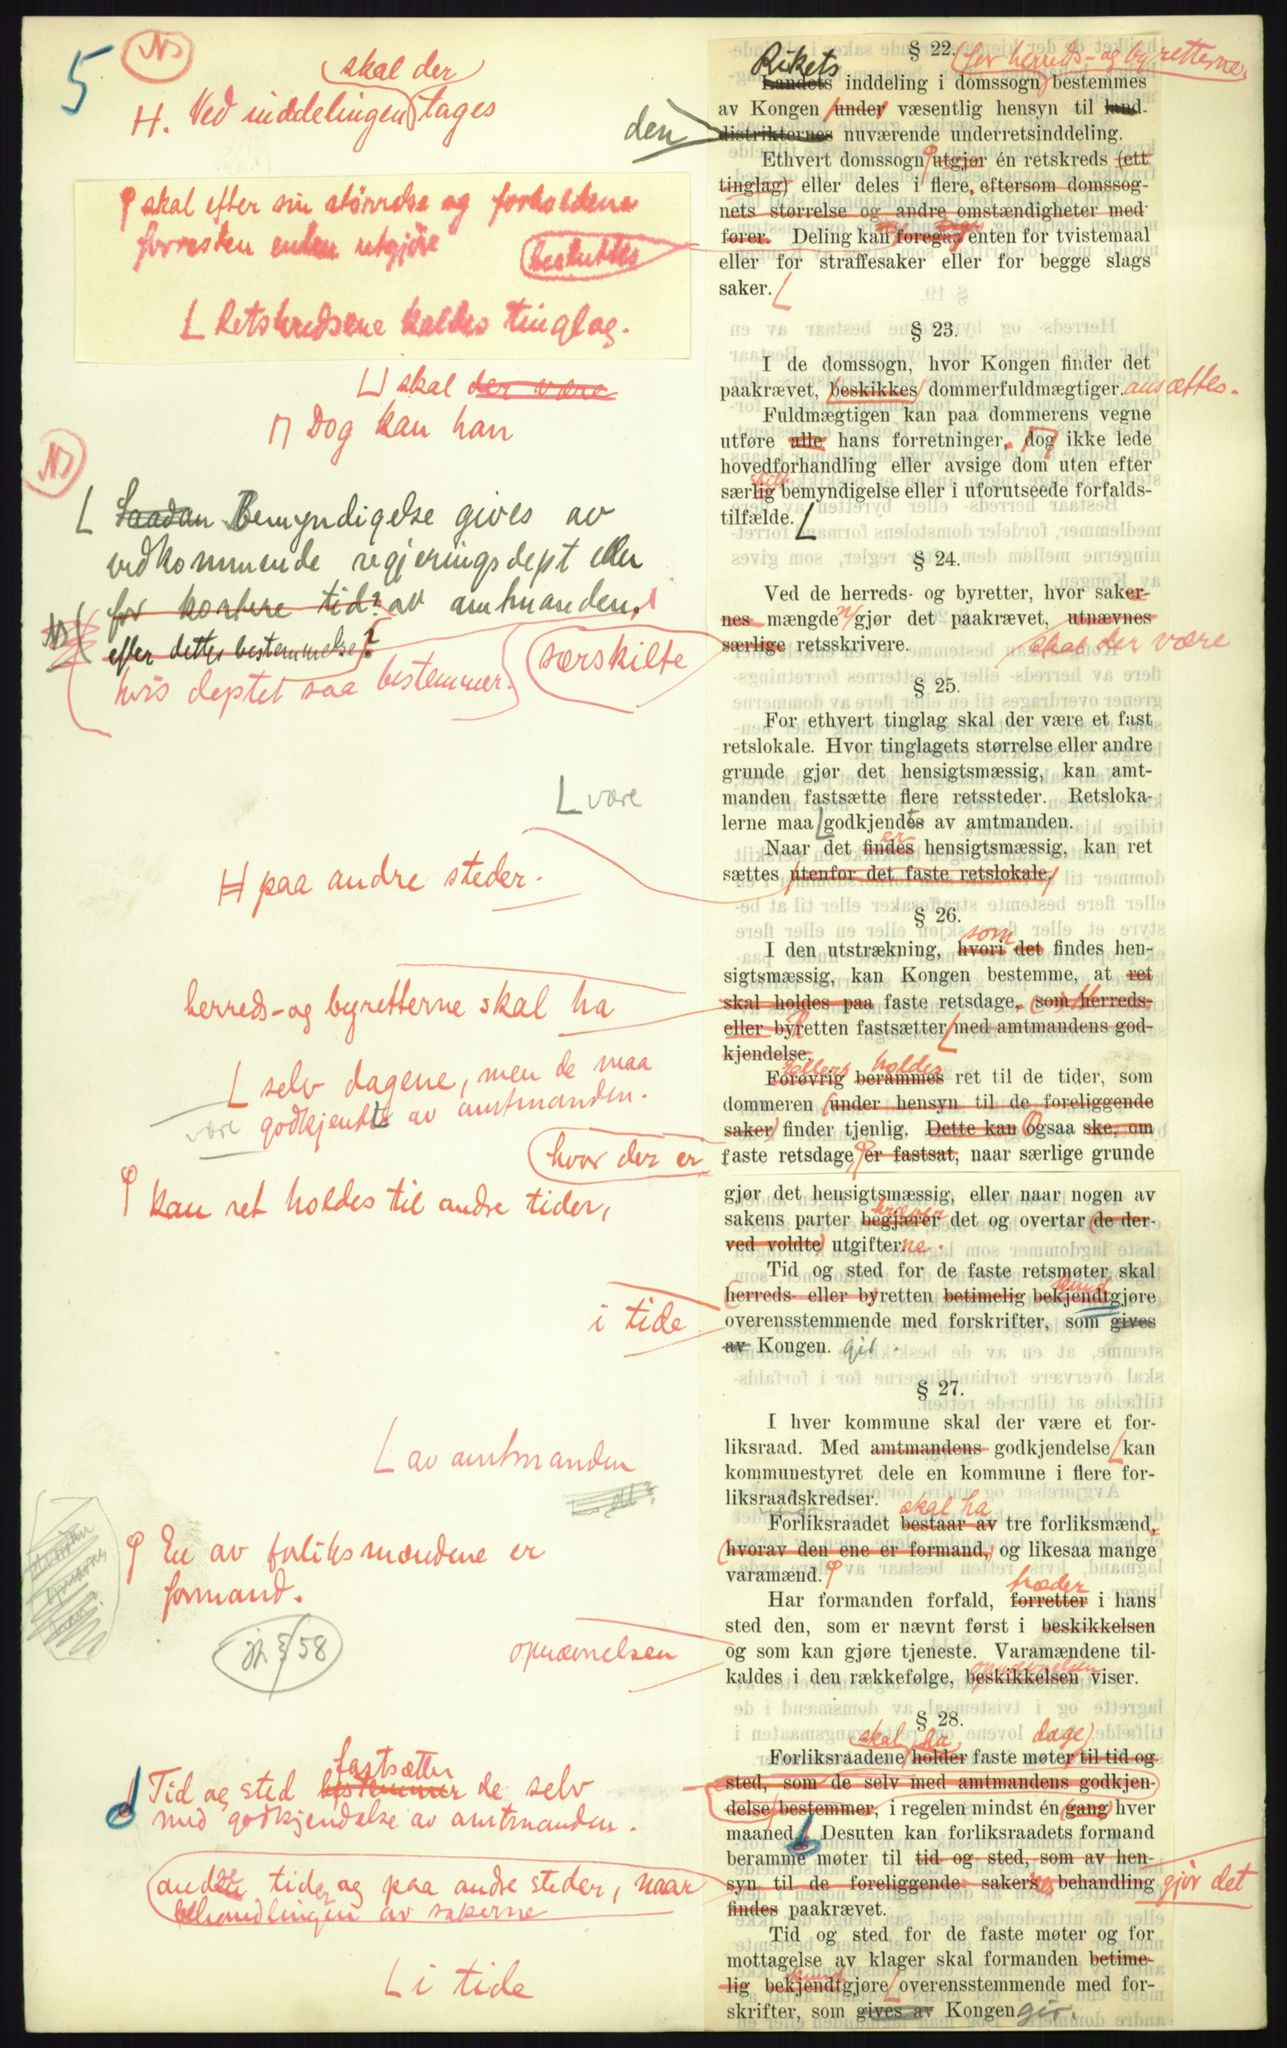 5
NB
skal der
H. Ved inddelingen tages
den
φ skal efter sin størrelse og forholdene
forresten enten utgjøre
besluttes
L Retskredsene kaldes tinglag.
skal der være
Π Dog kan han
NB
L Saadan Bemyndigelse gives av
vedkommende regjeringsdept eller
for kortere tid? av amtmanden,
efter dettes bestemmelse?
hvis deptet saa bestemmer.
særskilte
L være
H paa andre steder.
herreds- og byretterne skal ha
L selv dagene, men de maa
være godkjendt av amtmanden.
hvor der er
φ kan ret holdes til andre tider,
i tide
L av amtmanden
φ En av forliksmændene er
formand.
jfr § 58
opnævnelsen
fastsætter
Tid og sted bestemmer de selv
med godkjendelse av amtmanden.
andre tider og paa andre steder, naar
behandlingen av sakerne
L i tide
§ 22.
Rikets
for herreds- og byretterne
Landets inddeling i domssogn bestemmes
av Kongen under væsentlig hensyn til land-
distrikternes nuværende underretsinddeling.
Ethvert domssogn φ utgjør én retskreds (ett
tinglag) eller deles i flere, eftersom domssog-
nets størrelse og andre omstændigheter med-
fører. Deling kan foregaa enten for tvistemaal
eller for straffesaker eller for begge slags
saker. L
§ 23.
I de domssogn, hvor Kongen finder det
paakrævet, beskikkes dommerfuldmægtiger. ansættes.
Fuldmægtigen kan paa dommerens vegne
utføre alle hans forretninger, dog ikke lede
hovedforhandling eller avsige dom uten efter
særlig bemyndigelse eller i uforutseede forfalds-
tilfælde. L
§ 24.
Ved de herreds- og byretter, hvor saker-
nes mængde gjør det paakrævet, utnævnes
særlige retsskrivere. skal der være
§ 25.
For ethvert tinglag skal der være et fast
retslokale. Hvor tinglagets størrelse eller andre
grunde gjør det hensigtsmæssig, kan amt-
manden fastsætte flere retssteder. Retsloka-
lerne maa L godkjendes av amtmanden.
er
Naar det findes hensigtsmæssig, kan ret
sættes utenfor det faste retslokale.
§ 26.
som
I den utstrækning, hvori det findes hen-
sigtsmæssig, kan Kongen bestemme, at ret
skal holdes paa faste retsdage, som herreds-
eller byretten fastsætter L med amtmandens god-
kjendelse.
Ellers holdes
Forøvrig berammes ret til de tider, som
dommeren (under hensyn til de foreliggende
saker) finder tjenlig. Dette kan ogsaa ske, om
faste retsdage φ er fastsat, naar særlige grunde
gjør det hensigtsmæssig, eller naar nogen av
kræver
sakens parter begjærer det og overtar (de der-
ved voldte) utgifterne.
Tid og sted for de faste retsmøter skal
kund
herreds- eller byretten betimelig bekjendtgjøre
overensstemmende med forskrifter, som gives
av Kongen. gir.
§ 27.
I hver kommune skal der være et for-
liksraad. Med amtmandens godkjendelse L kan
kommunestyret dele en kommune i flere for-
liksraadskredser.
skal ha
Forliksraadet bestaar av tre forliksmænd,
hvorav den ene er formand, og likesaa mange
varamænd. φ
træder
Har formanden forfald, forretter i hans
sted den, som er nævnt først i beskikkelsen
og som kan gjøre tjeneste. Varamændene til-
opnævnelsen
kaldes i den rækkefølge, beskikkelsen viser.
§ 28.
skal ha dage
Forliksraadene holder faste møter til tid og
sted, som de selv med amtmandens godkjen-
delse bestemmer, i regelen mindst én (gang) hver
maaned. Desuten kan forliksraadets formand
beramme møter til tid og sted, som av hen-
syn til de foreliggende sakers behandling gjør det
findes paakrævet.
Tid og sted for de faste møter og for
mottagelse av klager skal formanden betime-
kund
lig bekjendtgjøre L overensstemmende med for-
skrifter, som gives av Kongen gir.